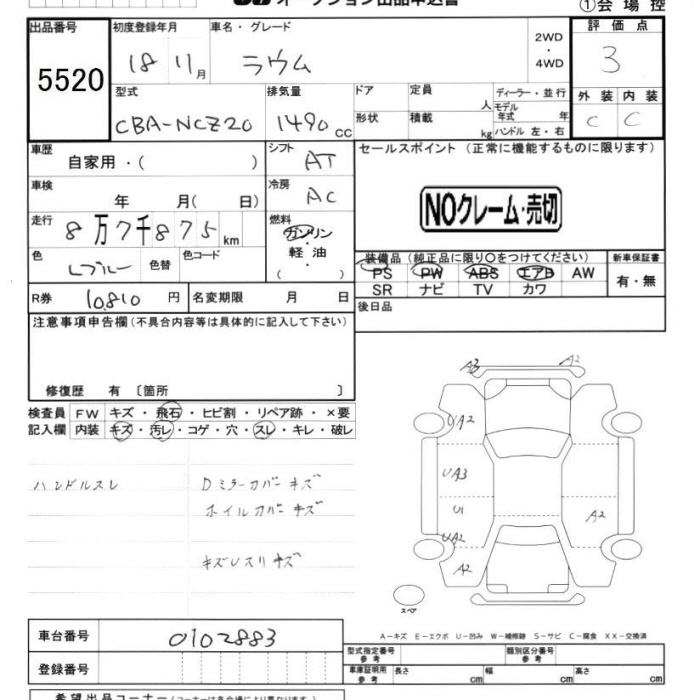 オークション出品申込書
①会場控
出品番号
5520
初度登録年月
18 11月
車名・グレード
ラウム
2WD
・
4WD
評価点
3
型式
CBA-NCZ20
排気量
1490 cc
ドア
形状
定員 人
積載 kg
ディーラー・並行
モデル年式 年
ハンドル 左・右
外装 内装
C C
車歴
自家用・( )
シフト
AT
セールスポイント (正常に機能するものに限ります)
車検
年 月( 日)
冷房
AC
NOクレーム・売切
走行
8万7千875km
燃料
ガソリン
・
軽油
( )
色
Lブルー
色替
色コード
装備品 (純正品に限り○をつけてください)
PS PW ABS エアB AW
SR ナビ TV カワ
新車保証書
有・無
R券 10,810 円
名変期限 月 日
後日品
注意事項申告欄 (不具合内容等は具体的に記入して下さい)
修復歴 有 〔箇所 〕
検査員
記入欄
FW キズ・飛石・ヒビ割・リペア跡・×要
内装 キズ・汚レ・コゲ・穴・スレ・キレ・破レ
ハンドルスレ
Dミラーカバーキズ
ホイルカバーキズ
A3 A2
UA2
UA3
U1
UA2
A2
A2
スペア
A-キズ E-エクボ U-凹み W-補修跡 S-サビ C-腐食 XX-交換済
車台番号
0102883
登録番号
型式指定番号
参考
類別区分番号
参考
車庫証明用
参考
長さ cm
幅 cm
高さ cm
希望出品コーナー